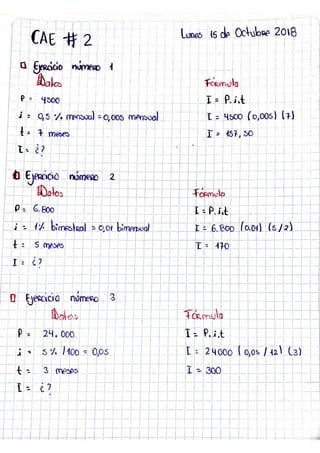 CAE # 2
Lunes 15 de Octubre 2018
Ejercicio número 1
Datos
Fórmula
P = 4500
I = P.i.t
i = 0,5 % mensual = 0,005 mensual
I = 4500 (0,005) (7)
t = 7 meses
I = 157,50
I = ¿?
Ejercicio número 2
Datos
Fórmula
P = 6.800
I = P.i.t
i = 1% bimestral = 0,01 bimensual
I = 6.800 (0.01) (5/2)
t = 5 meses
I = 170
I = ¿?
Ejercicio número 3
Datos
Fórmula
P = 24.000
I = P.i.t
i = 5% /100 = 0,05
I = 24000 (0,05 / 12) (3)
t = 3 meses
I = 300
I = ¿?